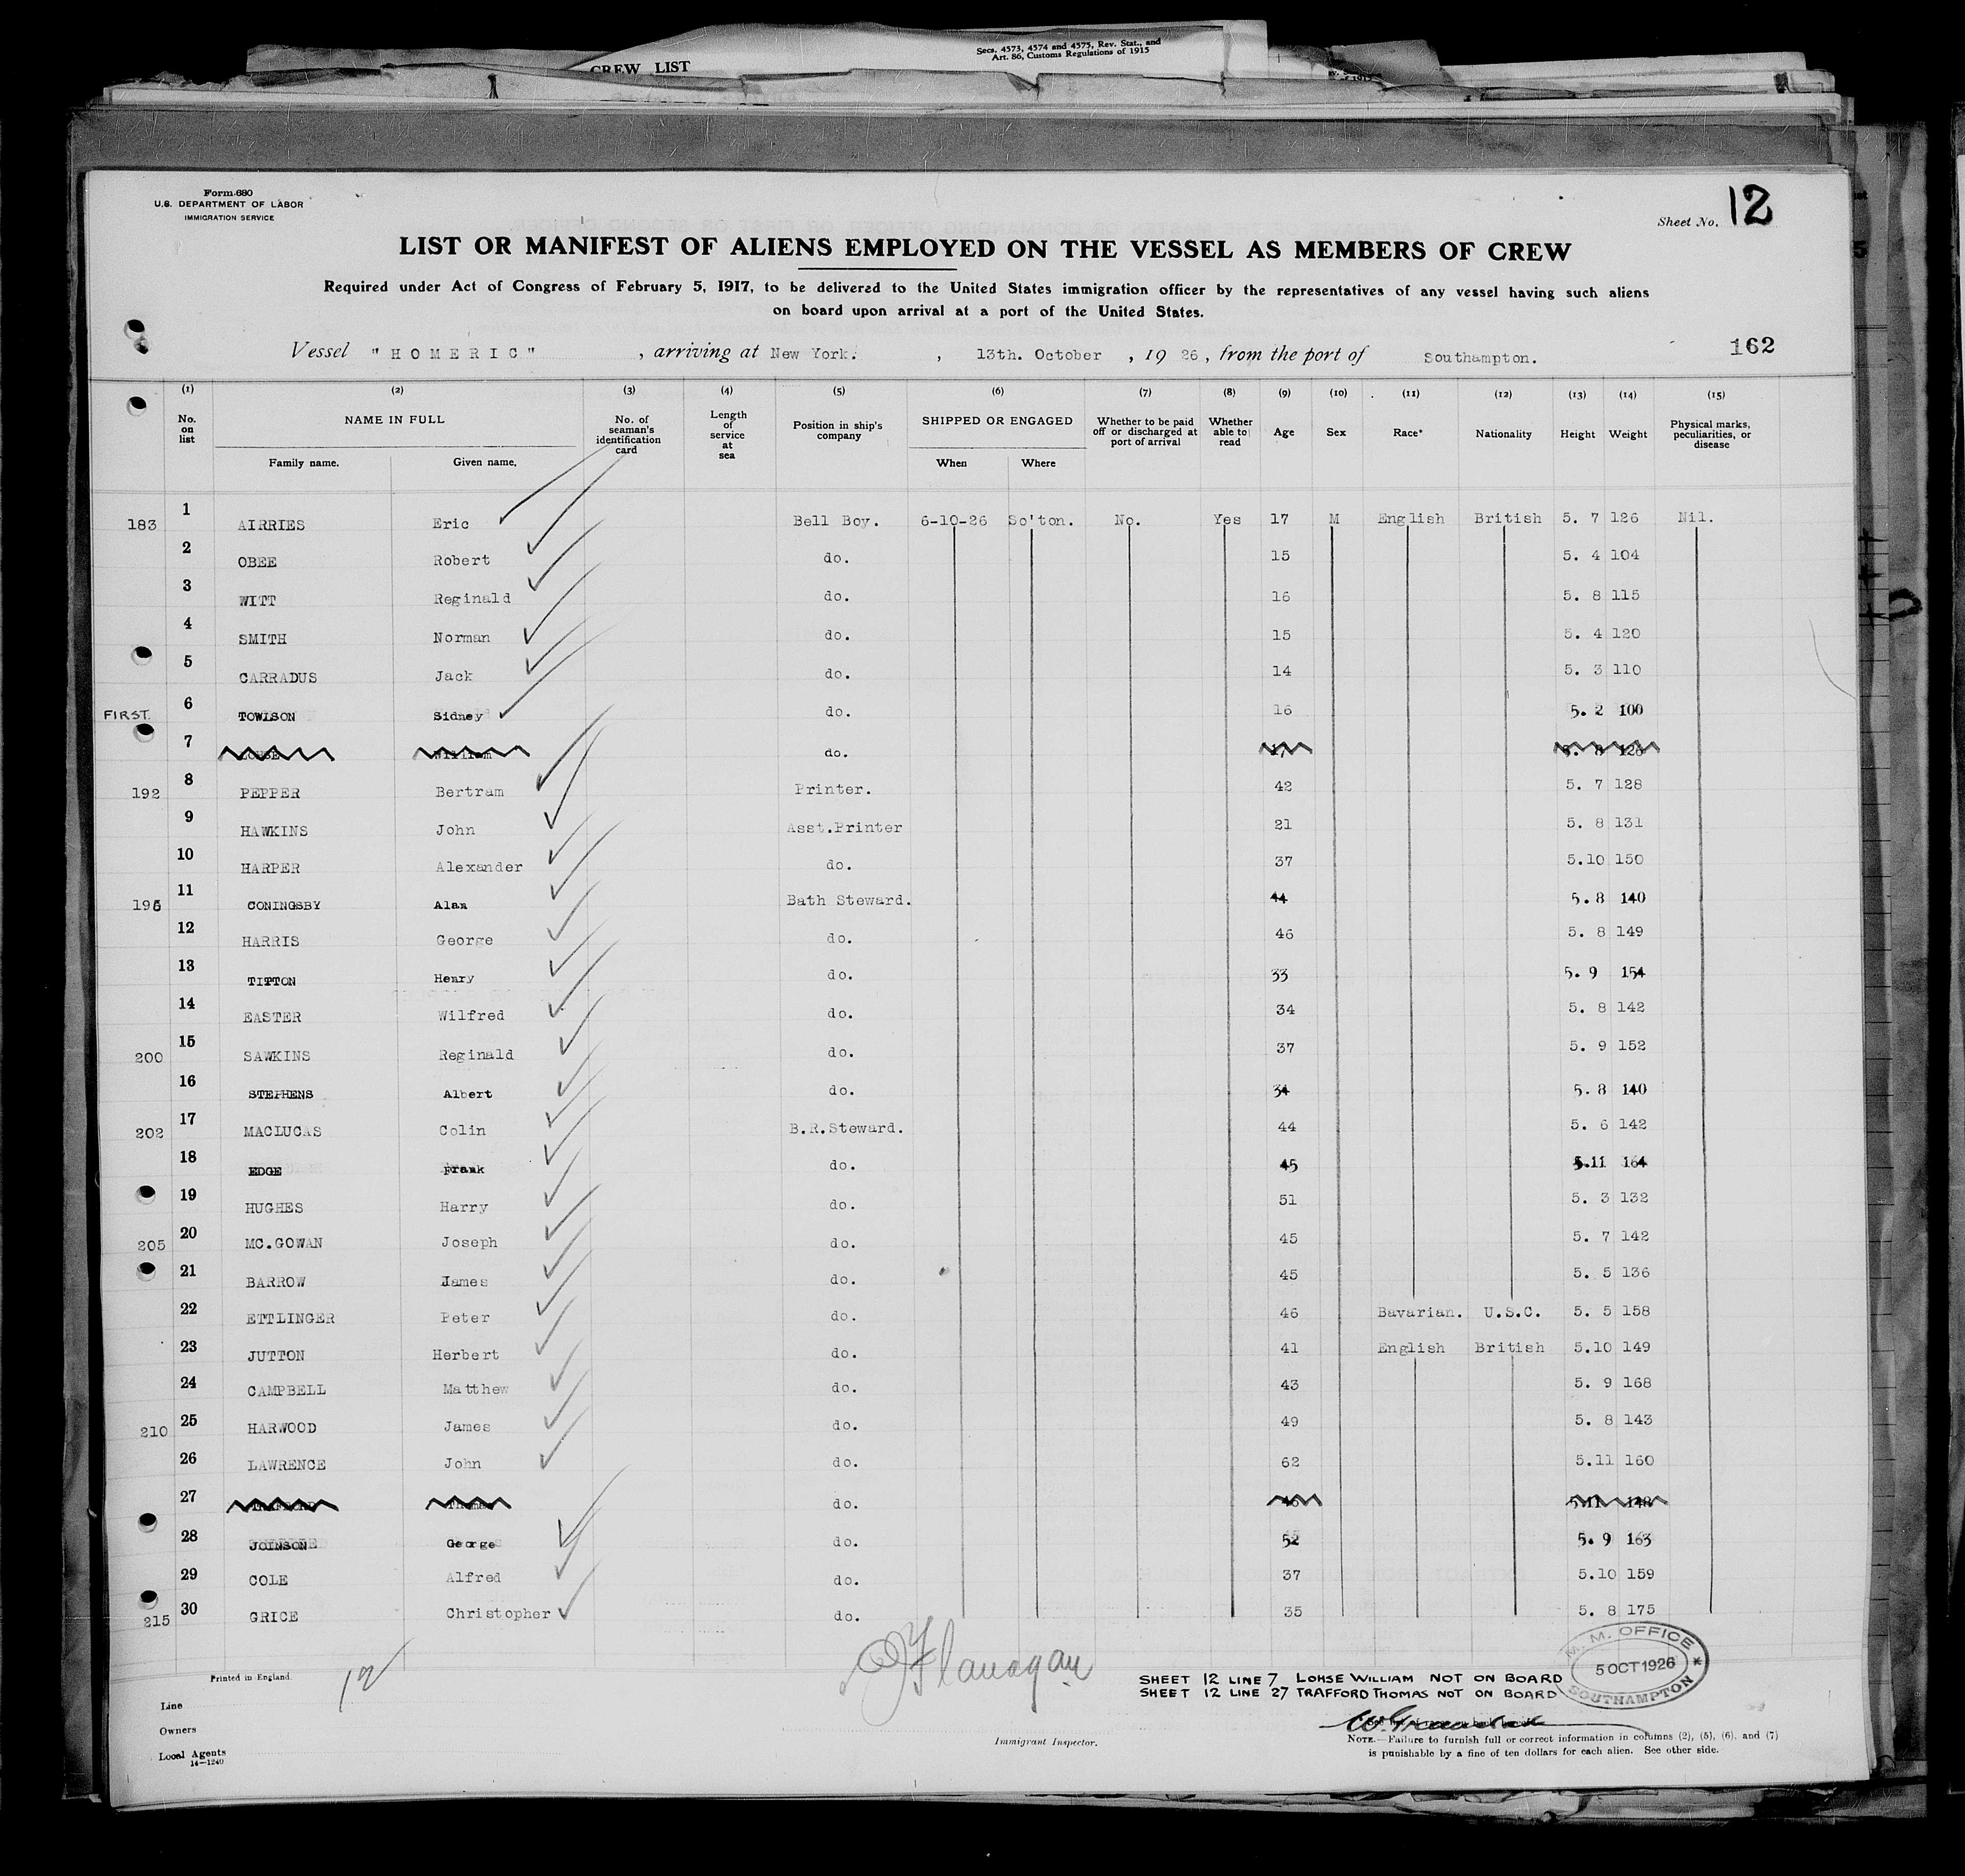 CREW LIST
Secs. 4573, 4574 and 4575, Rev. Stat., and
Art. 86, Customs Regulations of 1915
Form 680
U.S. DEPARTMENT OF LABOR
IMMIGRATION SERVICE
Sheet No. 12
LIST OR MANIFEST OF ALIENS EMPLOYED ON THE VESSEL AS MEMBERS OF CREW
Required under Act of Congress of February 5, 1917, to be delivered to the United States immigration officer by the representatives of any vessel having such aliens
on board upon arrival at a port of the United States.
Vessel "HOMERIC", arriving at New York., 13th. October, 1926, from the port of Southampton.
162
(1) (2) (3) (4) (5) (6) (7) (8) (9) (10) (11) (12) (13) (14) (15)
No. on list NAME IN FULL No. of seaman's identification card Length of service at sea Position in ship's company SHIPPED OR ENGAGED Whether to be paid off or discharged at port of arrival Whether able to read Age Sex Race* Nationality Height Weight Physical marks, peculiarities, or disease
Family name. Given name. When Where
183 1 AIRRIES Eric Bell Boy. 6-10-26 So'ton. No. Yes 17 M English British 5. 7 126 Nil.
2 OBEE Robert do. 15 5. 4 104
3 WITT Reginald do. 16 5. 8 115
4 SMITH Norman do. 15 5. 4 120
5 CARRADUS Jack do. 14 5. 3 110
FIRST. 6 TOWLSON Sidney do. 16 5. 2 100
7 William do. 17 5. 8 126
192 8 PEPPER Bertram Printer. 42 5. 7 128
9 HAWKINS John Asst.Printer 21 5. 8 131
10 HARPER Alexander do. 37 5.10 150
195 11 CONINGSBY Alan Bath Steward. 44 5. 8 140
12 HARRIS George do. 46 5. 8 149
13 TITTON Henry do. 33 5. 9 154
14 EASTER Wilfred do. 34 5. 8 142
200 15 SAWKINS Reginald do. 37 5. 9 152
16 STEPHENS Albert do. 34 5. 8 140
202 17 MACLUCAS Colin B.R.Steward. 44 5. 6 142
18 EDGE Frank do. 45 5.11 164
19 HUGHES Harry do. 51 5. 3 132
205 20 MC.GOWAN Joseph do. 45 5. 7 142
21 BARROW James do. 45 5. 5 136
22 ETTLINGER Peter do. 46 Bavarian. U.S.C. 5. 5 158
23 JUTTON Herbert do. 41 English British 5.10 149
24 CAMPBELL Matthew do. 43 5. 9 168
210 25 HARWOOD James do. 49 5. 8 143
26 LAWRENCE John do. 62 5.11 160
27 do. 5.11
28 JOINSON George do. 52 5. 9 163
29 COLE Alfred do. 37 5.10 159
215 30 GRICE Christopher do. 35 5. 8 175
Printed in England.
12
Flanagan
SHEET 12 LINE 7 LOHSE WILLIAM NOT ON BOARD
SHEET 12 LINE 27 TRAFFORD THOMAS NOT ON BOARD
M. M. OFFICE
5 OCT 1926
SOUTHAMPTON
Line
Owners
Local Agents
14-1240
Immigrant Inspector.
NOTE.—Failure to furnish full or correct information in columns (2), (5), (6), and (7)
is punishable by a fine of ten dollars for each alien. See other side.